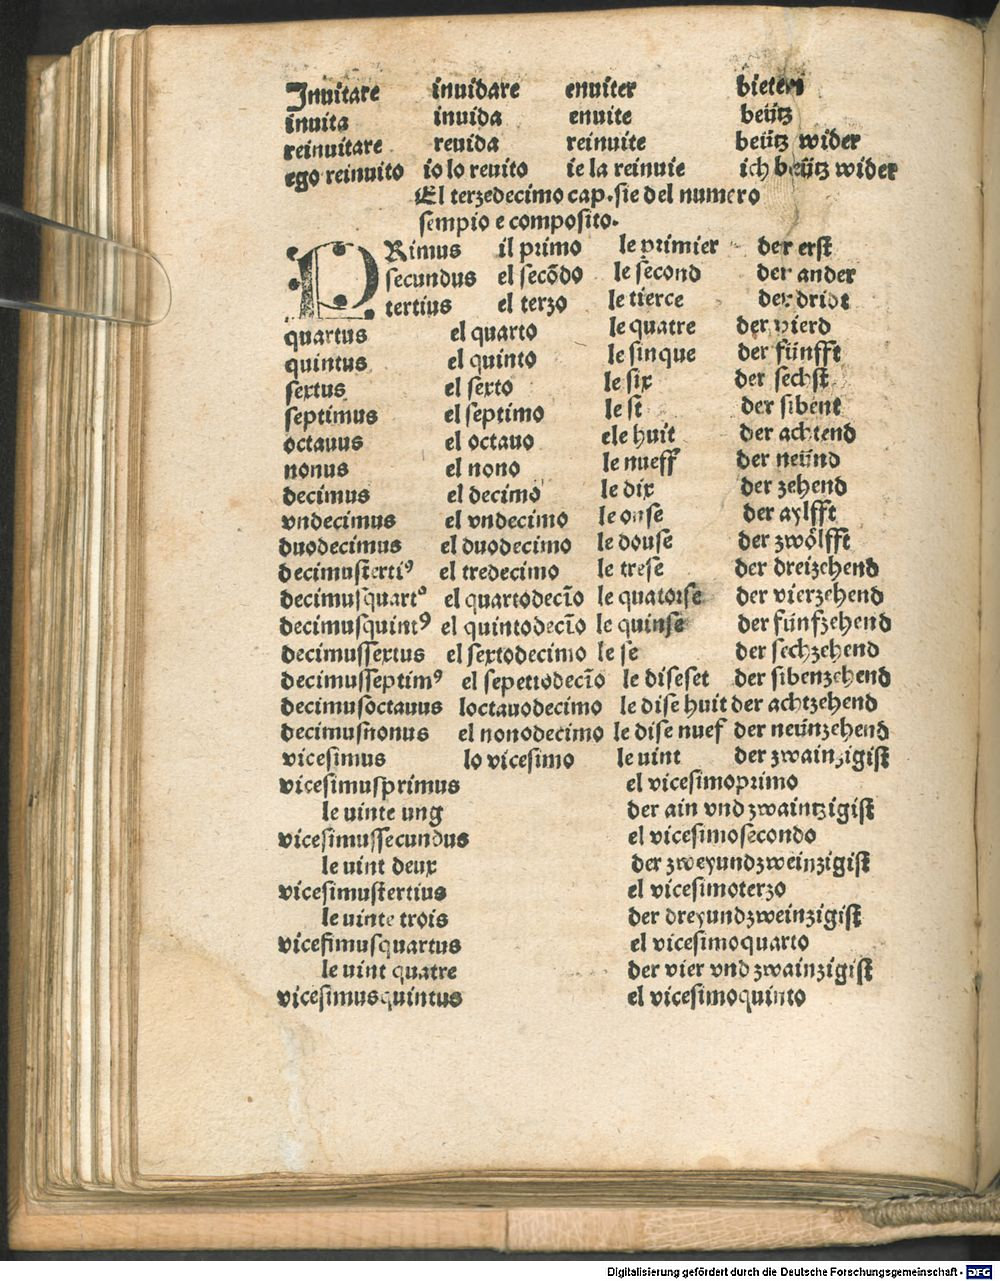 Inuitare inuidare enuiter bieten
inuita inuida enuite beütz
reinuitare reuida reinuite beütz wider
ego reinuito io lo reuito ie la reinuie ich beütz wider
El terzedecimo cap.sie del numero
sempio e composito.
PRimus il primo le primier der erst
secundus el secōdo le second der ander
tertius el terzo le tierce der dridt
quartus el quarto le quatre der vierd
quintus el quinto le sinque der fünfft
sextus el sexto le six der sechst
septimus el septimo le st der sibent
octauus el octauo ele huit der achtend
nonus el nono le nueff der neünd
decimus el decimo le dix der zehend
vndecimus el vndecimo le onse der aylfft
duodecimus el duodecimo le douse der zwölfft
decimustertiꝰ el tredecimo le trese der dreizehend
decimusquartꝰ el quartodecīo le quatorse der vierzehend
decimusquintꝰ el quintodecīo le quinse der fünfzehend
decimussextus el sextodecimo le se der sechzehend
decimusseptimꝰ el sepetiodecīo le diseset der sibenzehend
decimusoctauus loctauodecimo le dise huit der achtzehend
decimusnonus el nonodecimo le dise nuef der neünzehend
vicesimus lo vicesimo le uint der zwainzigist
vicesimusprimus el vicesimoprimo
le uinte ung der ain vnd zwaintzigist
vicesimussecundus el vicesimosecondo
le uint deux der zweyundzweinzigist
vicesimustertius el vicesimoterzo
le uinte trois der dreyundzweinzigist
vicesimusquartus el vicesimoquarto
le uint quatre der vier vnd zwainzigist
vicesimusquintus el vicesimoquinto
Digitalisierung gefördert durch die Deutsche Forschungsgemeinschaft - DFG